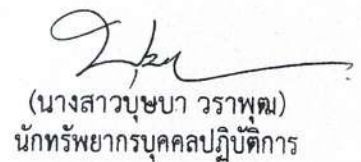 (นางสาวบุษบา วราพุฒ)
นักทรัพยากรบุคคลปฏิบัติการ